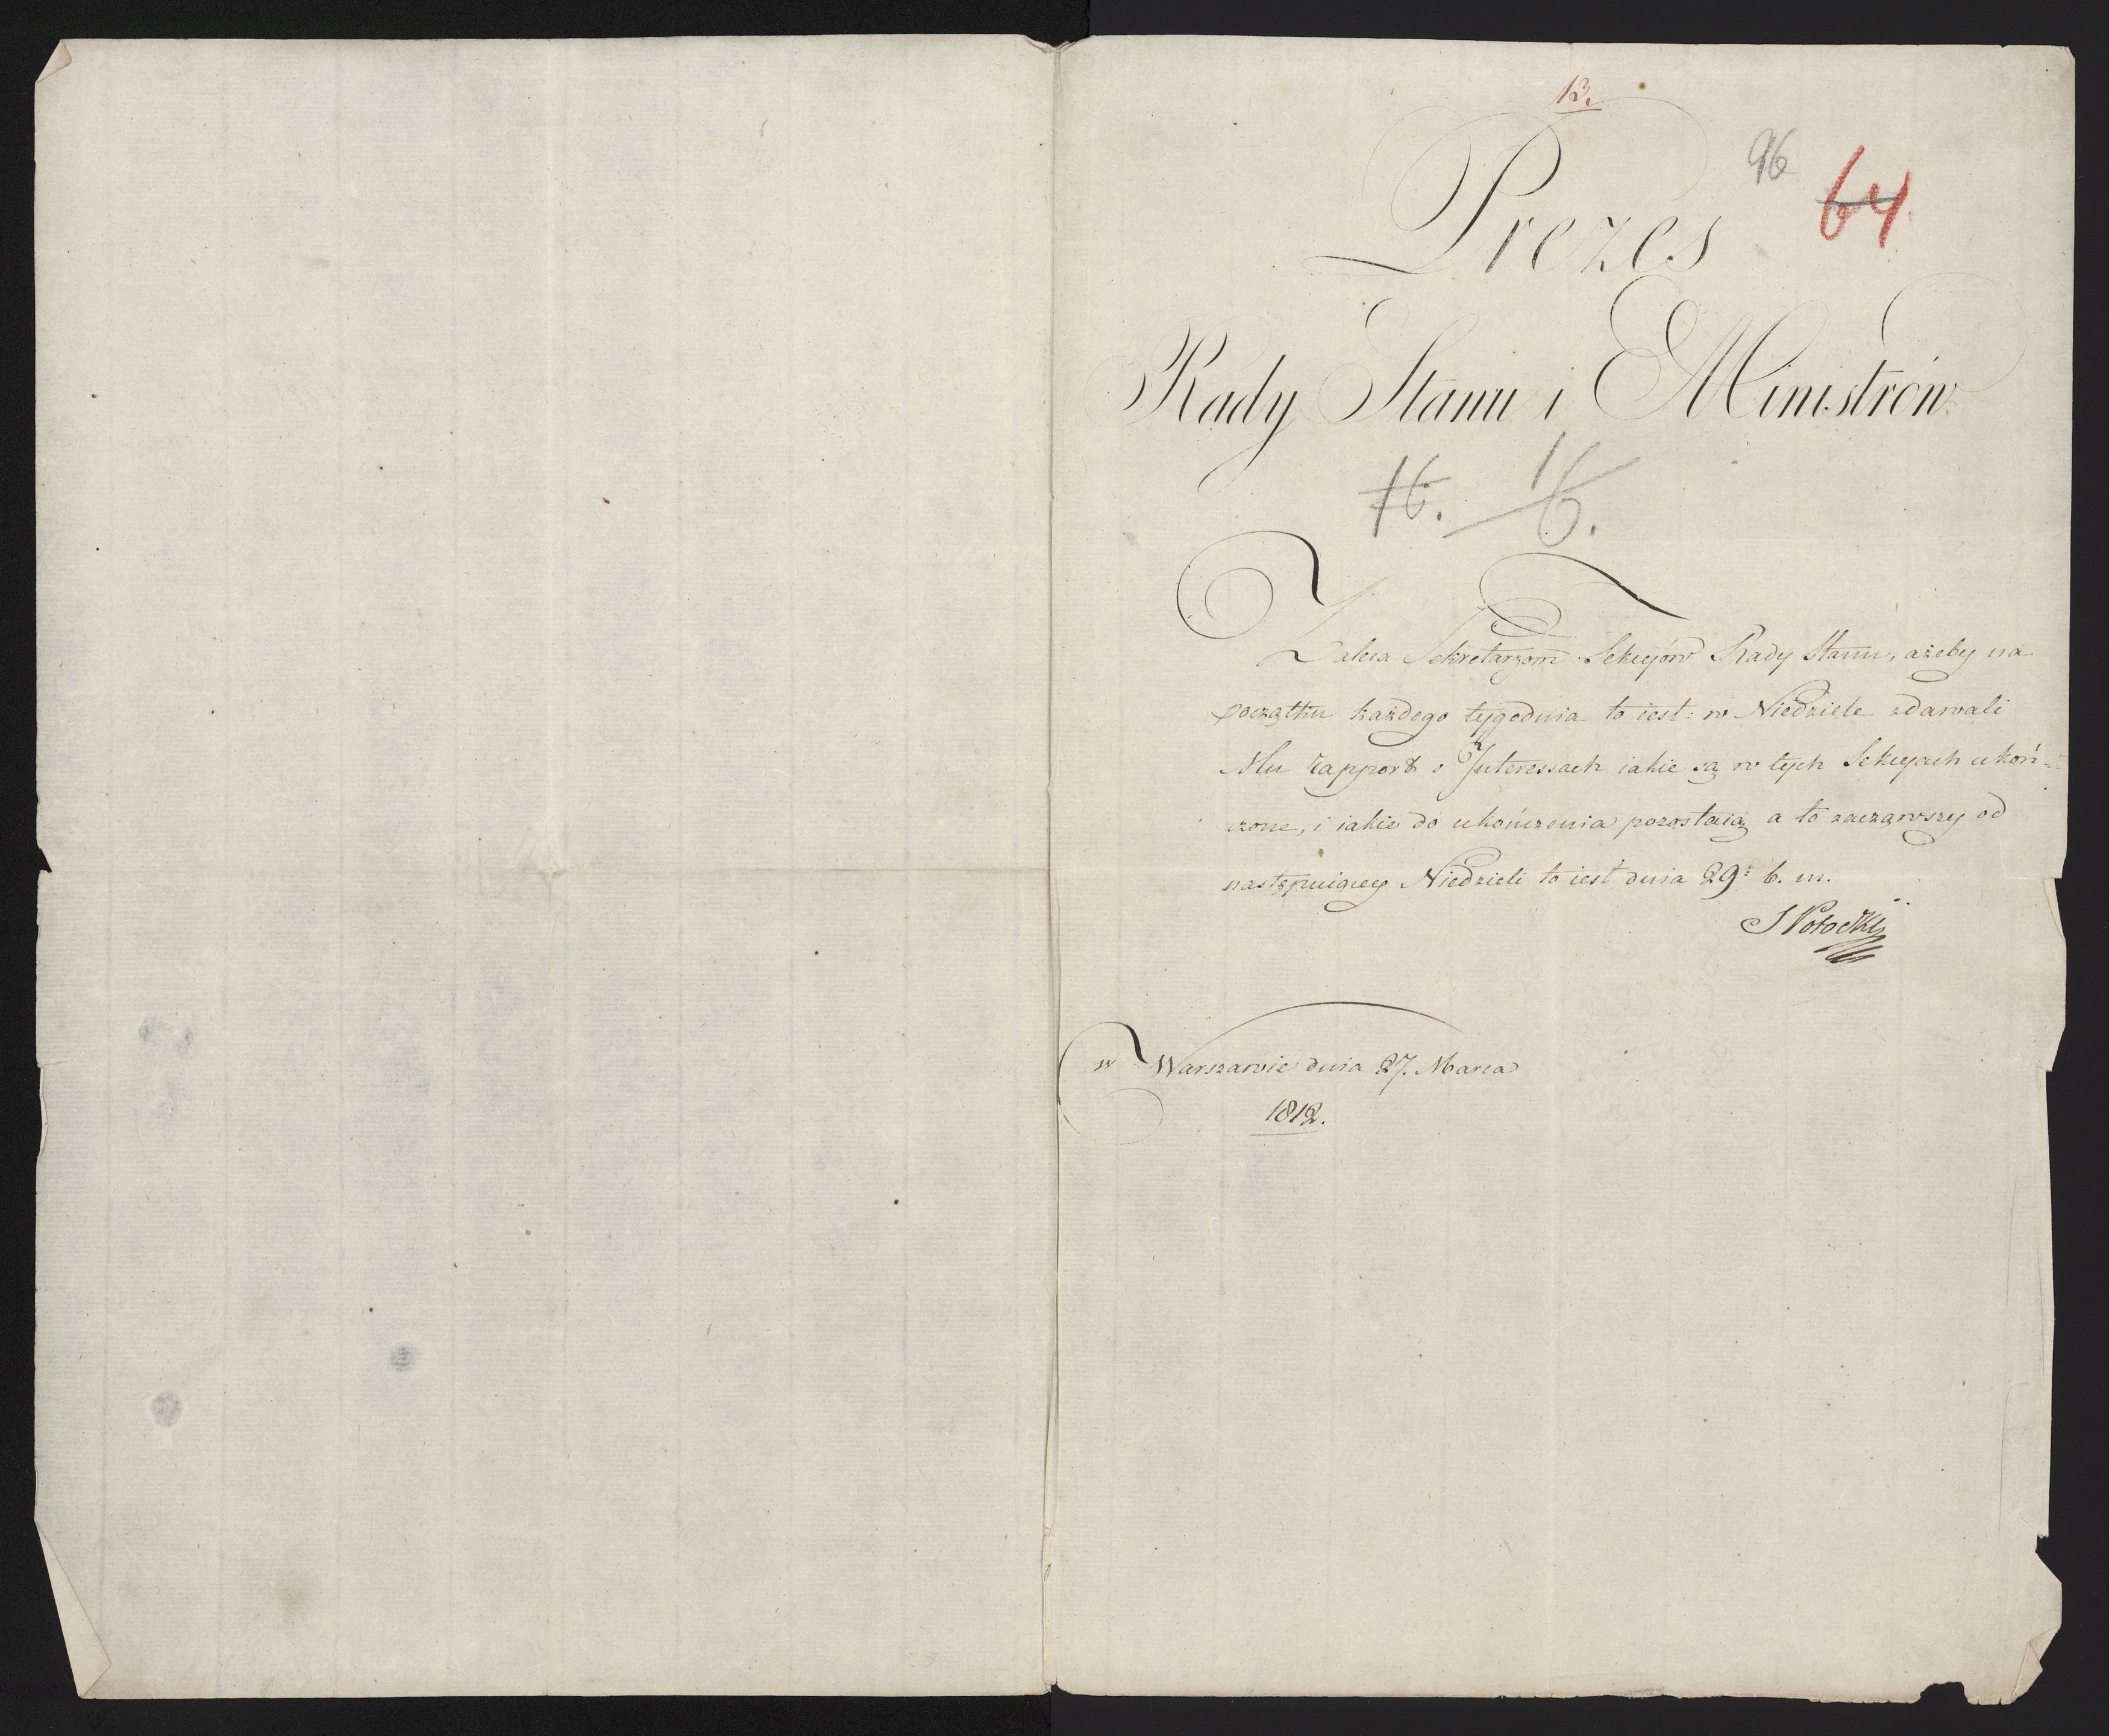 13.
96
64.
Prezes
Rady Stanu i Ministrów
16. 16.
Zaleca Sekretarzom Sekcyów Rady Stanu, ażeby na
początku każdego tygodnia to iest: w Niedziele zdawali
Mu rapport o Interessach iakie są w tych Sekcyach ukoń-
czone, i iakie do ukończenia pozostaią a to zacząwszy od
następuiącey Niedzieli to iest dnia 29. b. m.
S Potocky
w Warszawie dnia 27. Marca
1812.